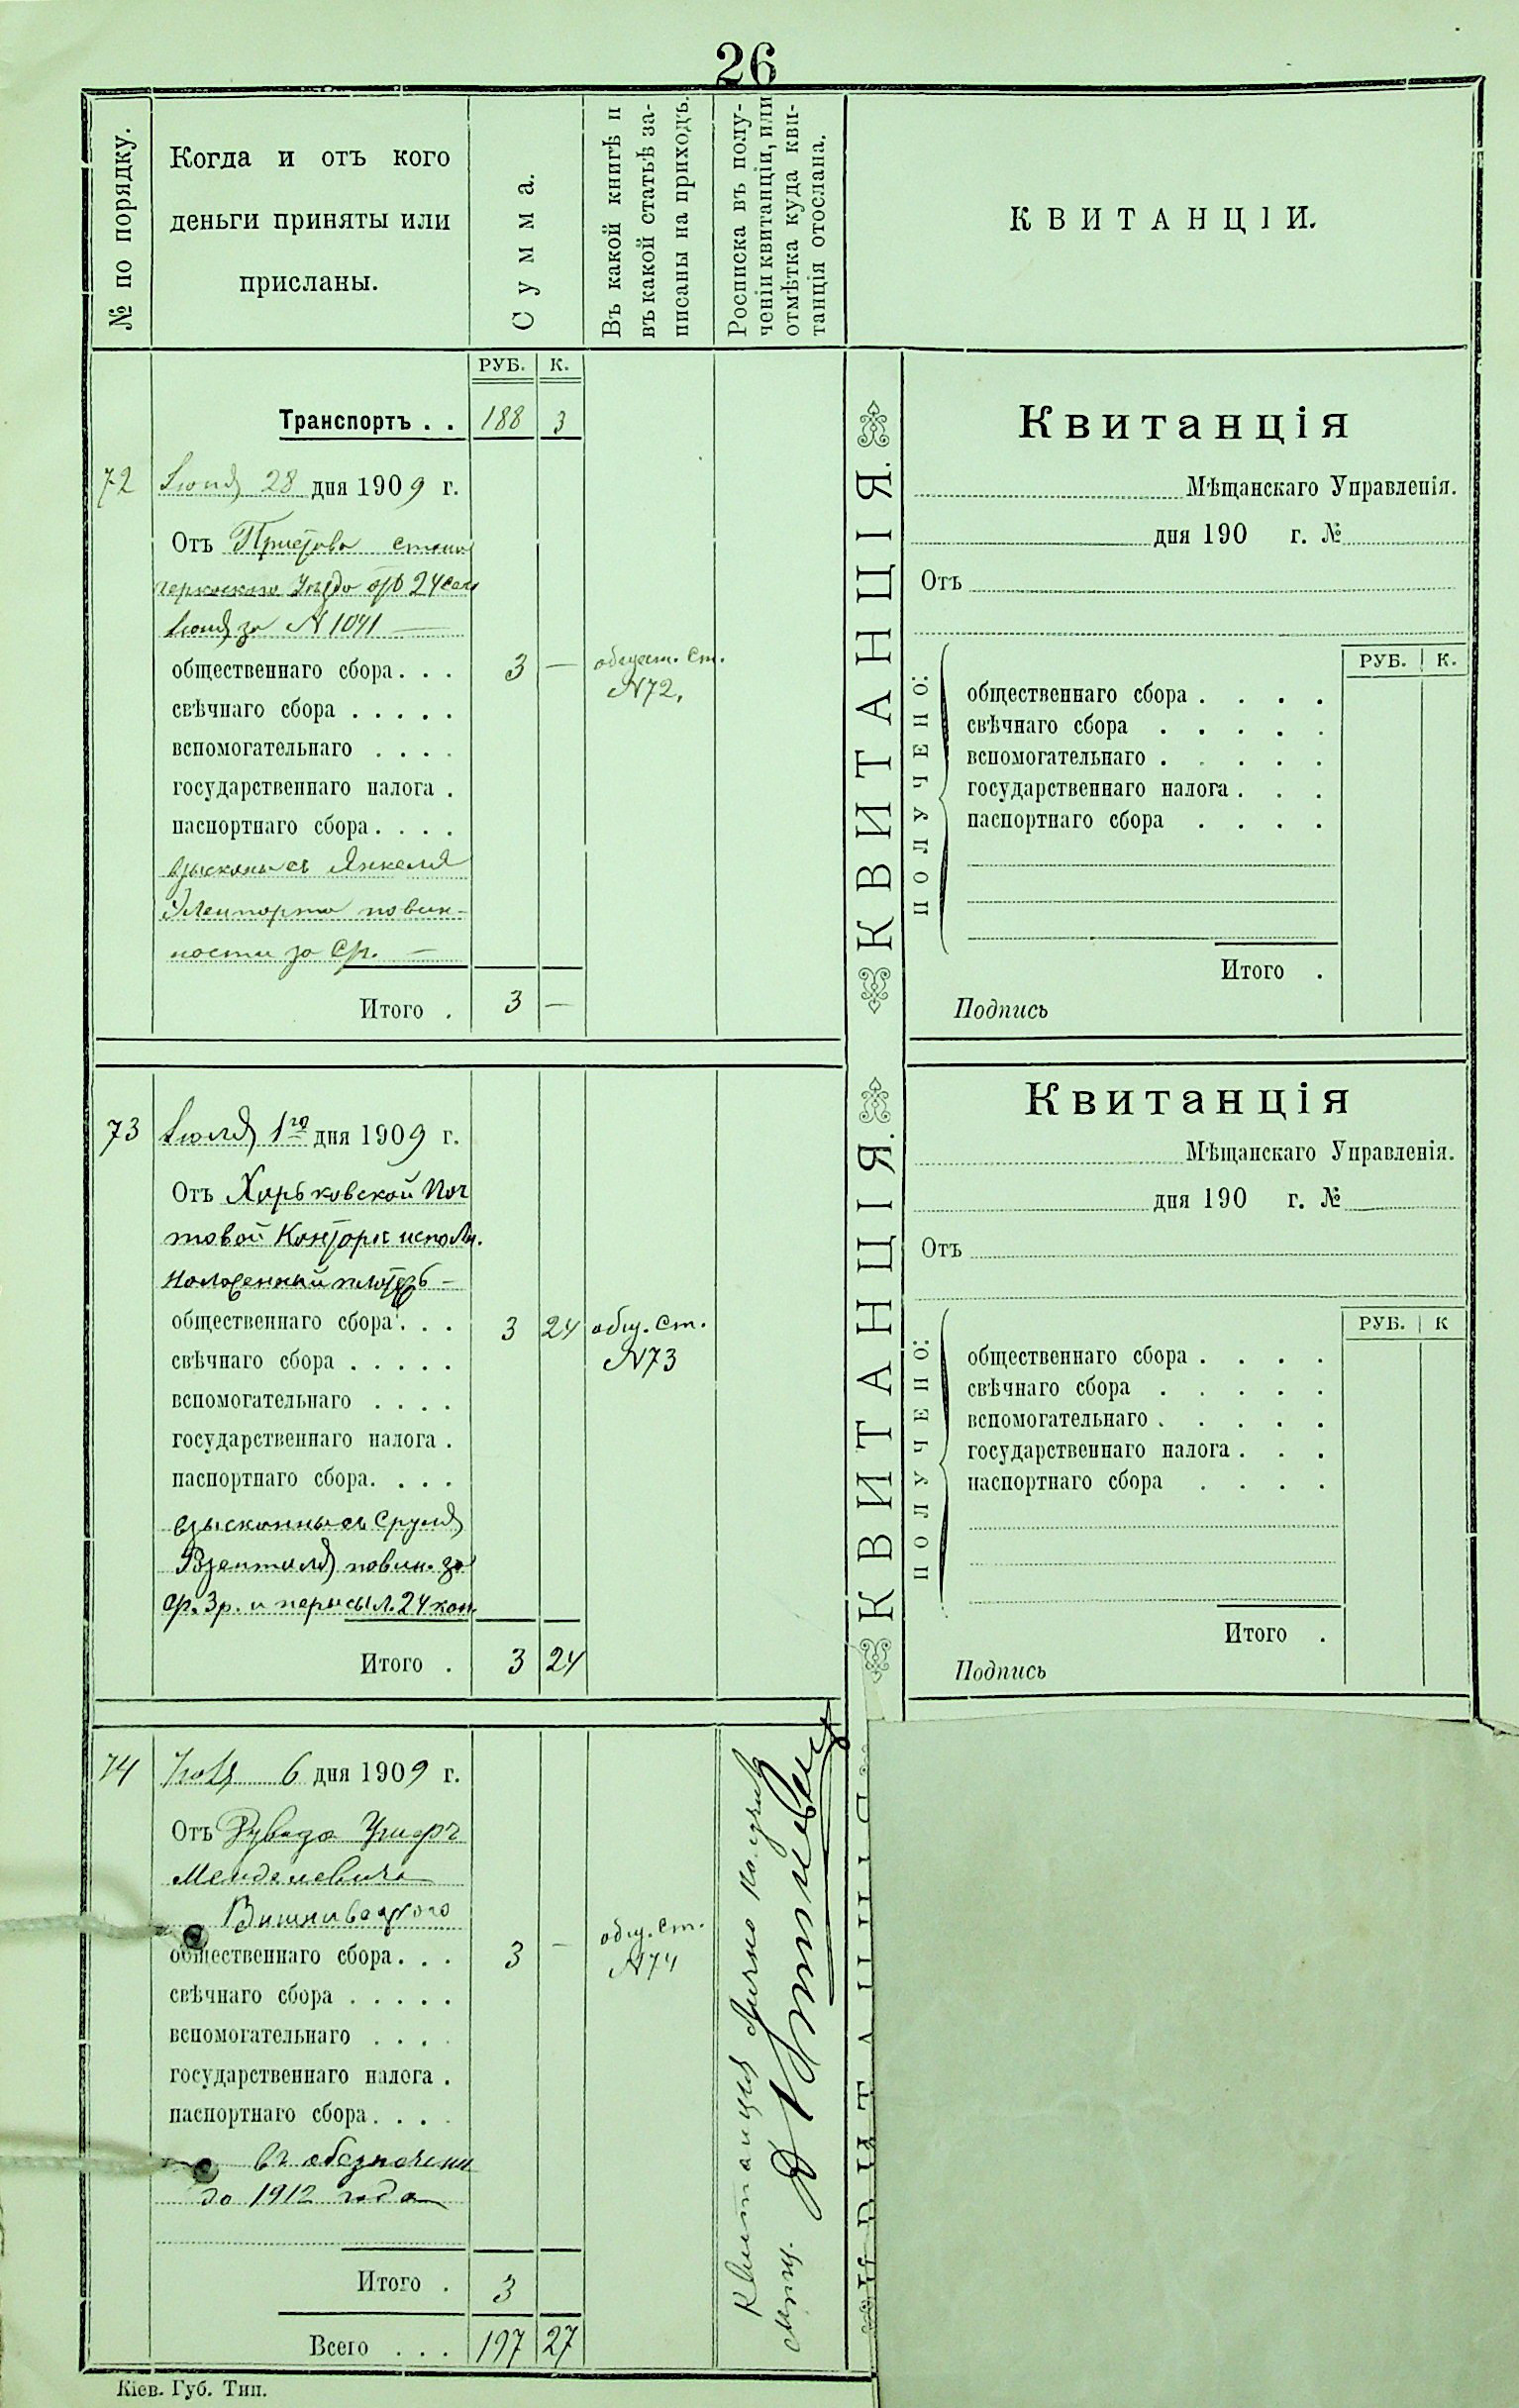 26
№ по порядку.
Когда и отъ кого
деньги приняты или
присланы.
Сумма.
Въ какой книгѣ и
въ какой статьѣ за-
писаны на приходъ.
Росписка въ полу-
ченіи квитанціи, или
отмѣтка куда кви-
танція отослана.
КВИТАНЦІИ.
РУБ. К.
Транспортъ . . 188 3
72 Іюня 28 дня 1909 г.
Отъ Пристава стана
Черкасскаго Уѣзда отъ 24 сего
Іюня за №1041 —
общественнаго сбора. . . 3 — общест. ст.
№72.
свѣчнаго сбора . . . . .
вспомогательнаго . . . .
государственнаго налога .
паспортнаго сбора. . . .
взыскан. съ Янкеля
повин-
ности за
Итого . 3 —
73 Іюля 1го дня 1909 г.
Отъ Харьковской Поч
товой Конторы
наложенный платежъ —
общественнаго сбора. . . 3 24 общ. ст.
№73
свѣчнаго сбора . . . . .
вспомогательнаго . . . .
государственнаго налога .
паспортнаго сбора. . . .
взысканные съ Сруля
Розенталя повин. за
3р. и пересыл. 24 коп.
Итого . 3 24
74 Іюля 6 дня 1909 г.
Отъ Рувида Ушеръ
Менделевича
общественнаго сбора. . . 3 — общ. ст.
№74
свѣчнаго сбора . . . . .
вспомогательнаго . . . .
государственнаго налога .
паспортнаго сбора. . . .
въ обезпечении
до 1912 года
Итого . 3
Всего . . . 197 27
Квитанция лично получилъ
Мѣщ.
Кіев. Губ. Тип.
КВИТАНЦІЯ.
Квитанція
Мѣщанскаго Управленія.
дня 190 г. №
Отъ
РУБ. К.
ПОЛУЧЕНО:
общественнаго сбора . . . .
свѣчнаго сбора . . . . .
вспомогательнаго . . . . .
государственнаго налога . . .
паспортнаго сбора . . . .
Итого .
Подпись
КВИТАНЦІЯ.
Квитанція
Мѣщанскаго Управленія.
дня 190 г. №
Отъ
РУБ. К
ПОЛУЧЕНО:
общественнаго сбора . . . .
свѣчнаго сбора . . . . .
вспомогательнаго . . . . .
государственнаго налога . . .
паспортнаго сбора . . . .
Итого .
Подпись